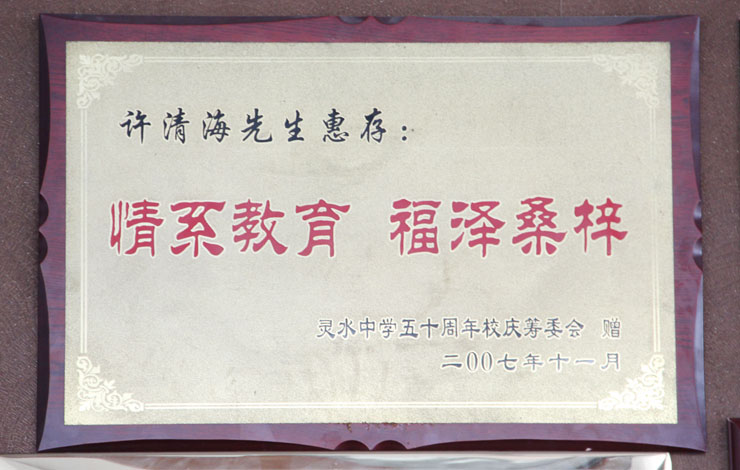 许清海先生惠存：
情系教育 福泽桑梓
灵水中学五十周年校庆筹委会 赠
二00七年十一月